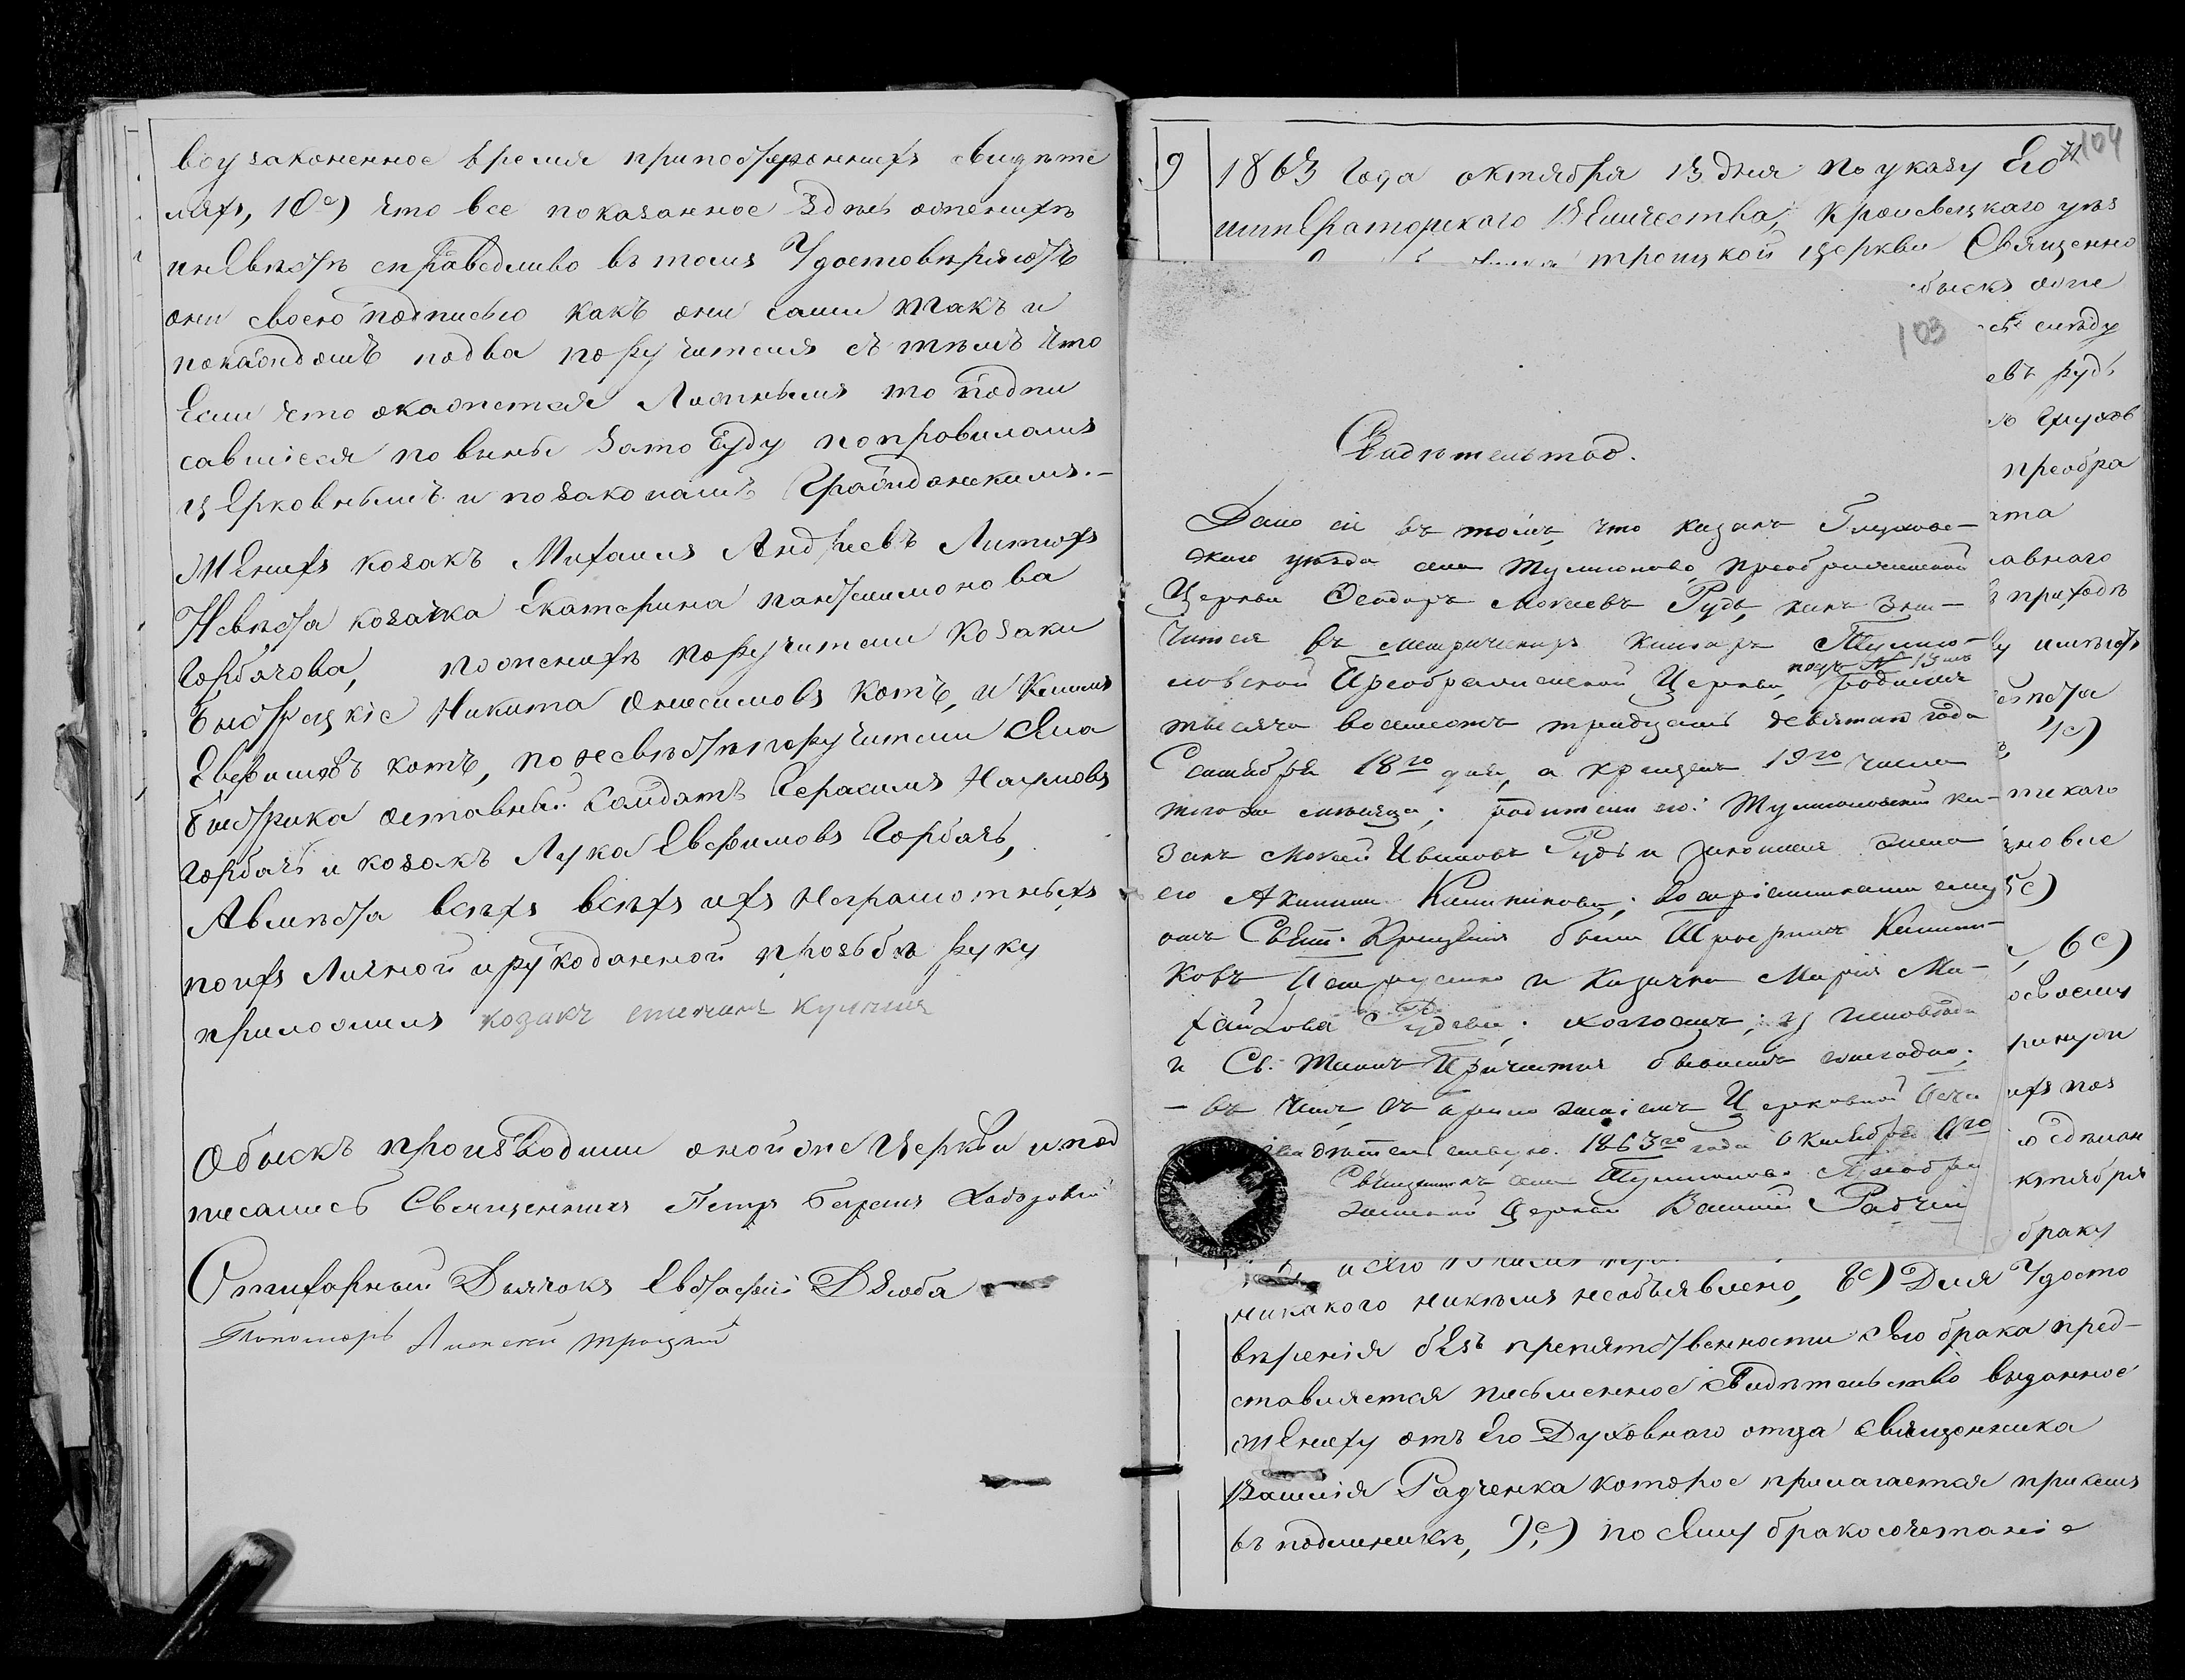 воузаконенное время припостороннихъ свидѣте
ляхъ, 10е) что все показанное здѣсь оженихѣ
иневѣстѣ справедливо въ томъ Удостовѣряютъ
они своею подписью какъ они сами такъ и
покаждомъ подва поручителя съ тѣмъ что
Если что окажется Ложнымъ то подпи
савшіеся повинны зато суду поправиламъ
церковнымъ и позаконамъ Гражданскимъ.—
Женихъ козакъ Михаилъ Андреевъ Литюхъ
Невѣста козачка Екатерина пантелимонова
Горбачова, поженихѣ поручители козаки
Быстрицкіе Никита Онисимовъ котъ, и Климъ
Евфимовъ котъ, поневѣстѣ поручители Села
быстрика отставный Солдатъ Герасимъ Наумовъ
Горбачъ и козакъ Лука Евфимовъ Горбачъ,
Авмѣсто всѣхъ всѣхъ ихъ Неграмотныхъ
поихъ Личной ирукоданной прозьбѣ руку
приложилъ козакъ степанъ
Обыскъ производили онойже Церкви ипод
писались Священникъ Петръ
Стихарный Дьячокъ Евстафій Дзюба
Пономарь Троицкій
104
9 1863 Года октября 13 дня по указу Его
императорскаго Величества, кролевецкаго уѣз
троицкой церкви Священно
обыскъ оже
103
слѣду
евъ рудь
Глухов
преобра
лавнаго
приходѣ
имѣютъ
вѣста
4е)
5е)
6е)
сдѣлан
ктября
браку
Свидѣтельство.
Дано сіе въ томъ, что казакъ Глуховс-
скаго уѣзда села Тулиголово, Преображенской
Церкви Феодоръ Мокіевъ Рудь, какъ зна-
чится въ метрическихъ книгахъ Тулиго-
ловской Преображенской Церкви, подъ № 13мъ родился
тысяча восемьсотъ тридцать девятаго года
Сентября 18го дня, а крещенъ 19го числа
тогоже мѣсяца; родители его: Тулиголовскій ка-
закъ Мокій Ивановъ Рудь и законная жена
его Акилина Калиникова; Воспріемниками ему
отъ Свят. Крещенія были
ковъ и казачка Марія Ми-
хайлова Рудева; холостъ; у исповѣди
и Св. Таинъ Причастія бывалъ ежегодно;
— въ чемъ съ приложеніемъ Церковной печа
свидѣтельствую. 1863го года Октября 11го
Священникъ села Тулиголово Преобра
женской Церкви Василій Радчен
никакого никѣмъ необъявлено, 8е) Для Удосто
вѣренія безъ препятственности Сего брака пред-
ставляется письменное Свидѣтельство выданное
жениху отъ Его Духовнаго отца священника
Василія Радченка которое прилагается присемъ
въ подлинникѣ, 9е) по Сему бракосочетаніе